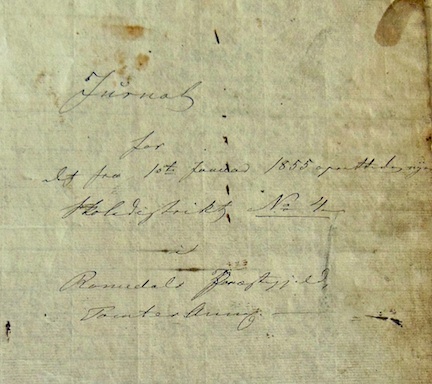 Journal
for
det fra 10de Januar 1855 oprettede nye
Skoledistrikt No 4
i
Romedals Præstegjeld,